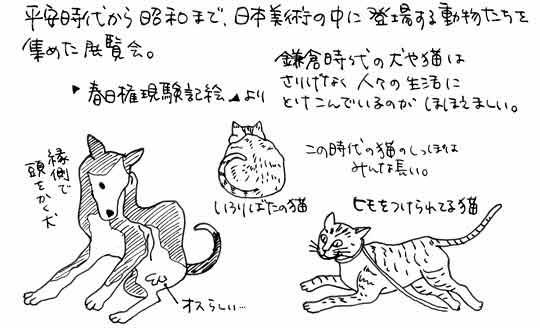 平安時代から昭和まで、日本美術の中に登場する動物たちを
集めた展覧会。
鎌倉時代の犬や猫は
さりげなく人々の生活に
とけこんでいるのがほほえましい。
春日権現験記絵より
この時代の猫のしっぽは
みんな長い。
縁側で
頭をかく犬
いろりばたの猫
ヒモをつけられてる猫
オスらしい…